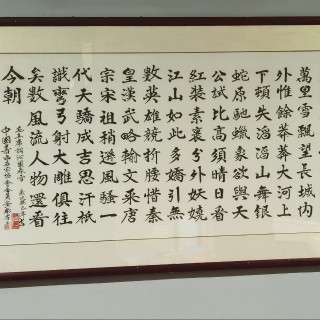 萬里雪飄望長城內
外惟餘莽莽大河上
下頓失滔滔山舞銀
蛇原馳蠟象欲與天
公試比高須晴日看
紅裝素裹分外妖嬈
江山如此多嬌引無
數英雄競折腰惜秦
皇漢武略輸文采唐
宗宋祖稍遜風騷一
代天驕成吉思汗祇
識彎弓射大雕俱往
矣數風流人物還看
今朝
毛主席詞沁園春雪